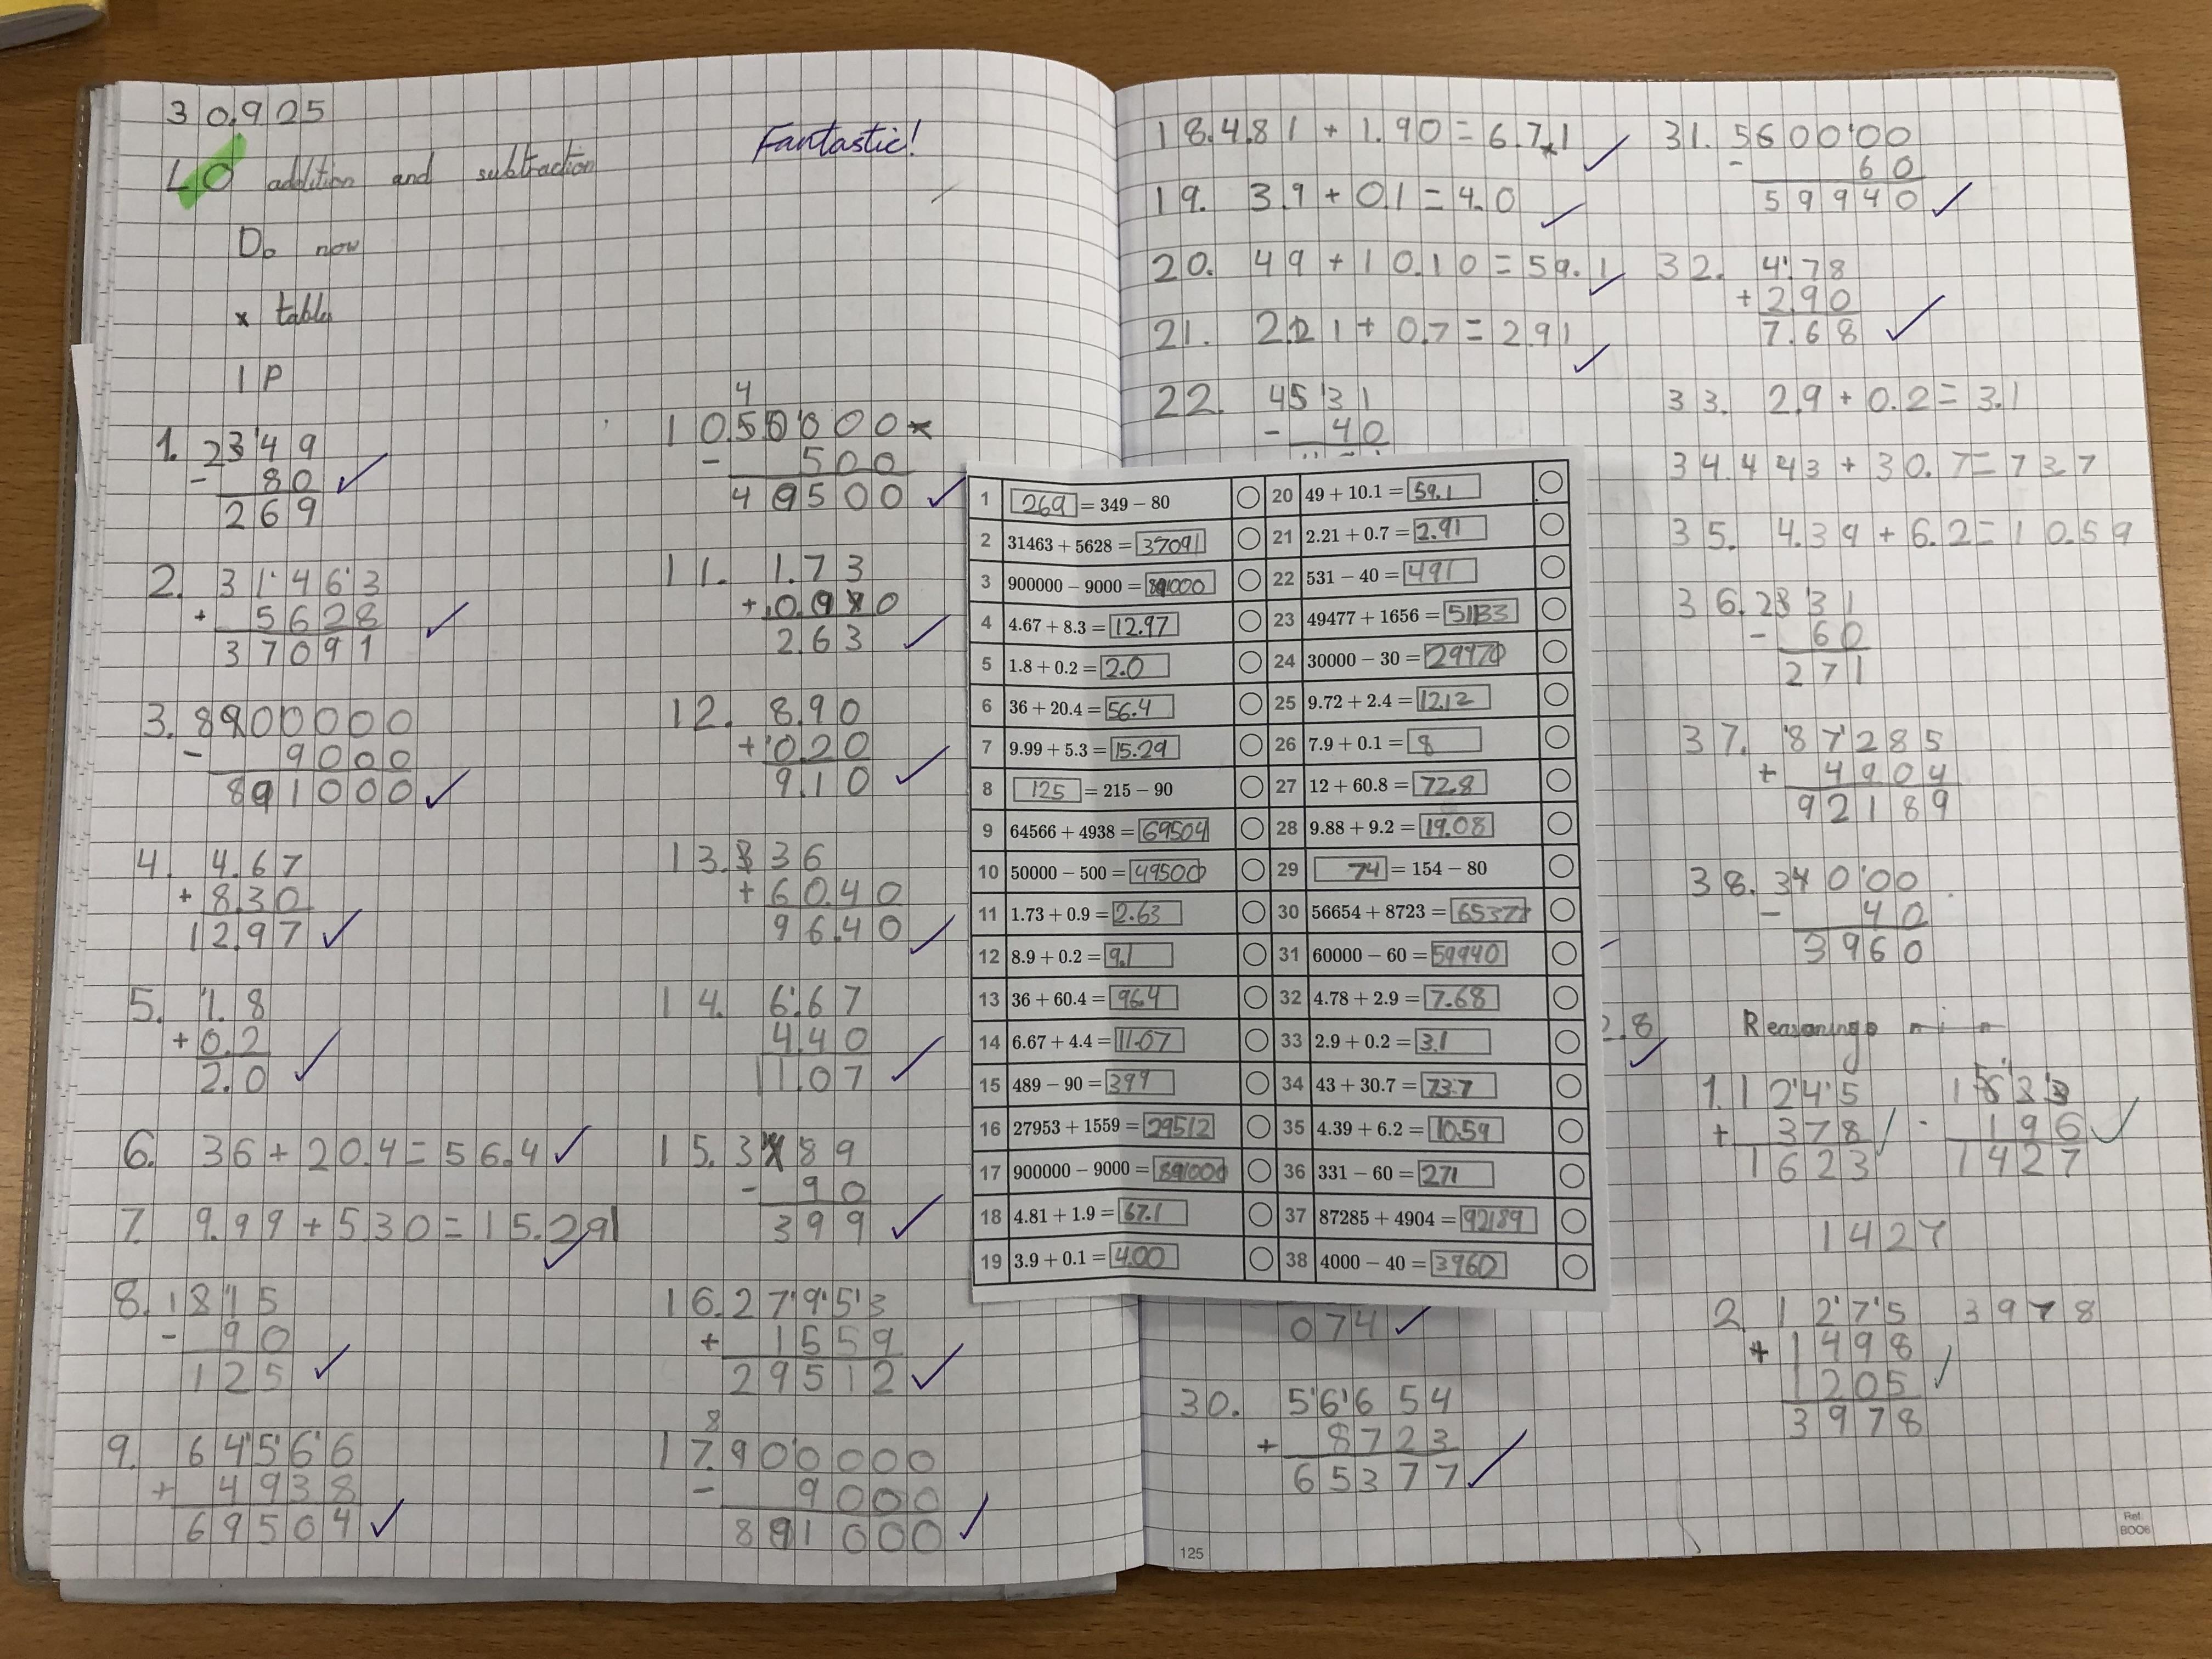 30.9.25
LO addition and subtraction
Fantastic!
Do now
x tables
IP
1. 2349
- 80
269
2. 31463
+ 5628
37091
3. 8900000
- 9000
891000
4. 4.67
+ 8.30
12.97
5. 1.8
+ 0.2
2.0
6. 36 + 20.4 = 56.4
7. 9.99 + 5.30 = 15.29
8. 1215
- 90
125
9. 64566
+ 4938
69504
4
10. 50000
- 500
49500
11. 1.73
+ 0.90
2.63
12. 8.90
+ 0.20
9.10
13. 36
+ 60.40
96.40
14. 6.67
4.40
11.07
15. 3489
- 90
399
16. 27953
+ 1559
29512
8
17. 900000
- 9000
891000
18. 4.81 + 1.90 = 6.71
19. 3.9 + 0.1 = 4.0
20. 49 + 10.10 = 59.1
21. 2.21 + 0.7 = 2.91
22. 4531
- 40
1 269 = 349 − 80
2 31463 + 5628 = 37091
3 900000 − 9000 = 891000
4 4.67 + 8.3 = 12.97
5 1.8 + 0.2 = 2.0
6 36 + 20.4 = 56.4
7 9.99 + 5.3 = 15.29
8 125 = 215 − 90
9 64566 + 4938 = 69504
10 50000 − 500 = 49500
11 1.73 + 0.9 = 2.63
12 8.9 + 0.2 = 9.1
13 36 + 60.4 = 96.4
14 6.67 + 4.4 = 11.07
15 489 − 90 = 399
16 27953 + 1559 = 29512
17 900000 − 9000 = 891000
18 4.81 + 1.9 = 67.1
19 3.9 + 0.1 = 4.00
20 49 + 10.1 = 59.1
21 2.21 + 0.7 = 2.91
22 531 − 40 = 491
23 49477 + 1656 = 51133
24 30000 − 30 = 29970
25 9.72 + 2.4 = 12.12
26 7.9 + 0.1 = 8
27 12 + 60.8 = 72.8
28 9.88 + 9.2 = 19.08
29 74 = 154 − 80
30 56654 + 8723 = 65377
31 60000 − 60 = 59940
32 4.78 + 2.9 = 7.68
33 2.9 + 0.2 = 3.1
34 43 + 30.7 = 73.7
35 4.39 + 6.2 = 10.59
36 331 − 60 = 271
37 87285 + 4904 = 92189
38 4000 − 40 = 3960
074
30. 56654
+ 8723
65377
125
31. 560000
- 60
59940
32. 4.78
+ 2.90
7.68
33. 2.9 + 0.2 = 3.1
34. 43 + 30.7 = 73.7
35. 4.39 + 6.2 = 10.59
36. 2331
- 60
271
37. 87285
+ 4904
92189
38. 34000
- 40
3960
2.8
Reasoning
1. 1245
+ 378
1623
1623
- 196
1427
1427
2. 1275 3978
+ 1498
1205
3978
Ref:
BOO6